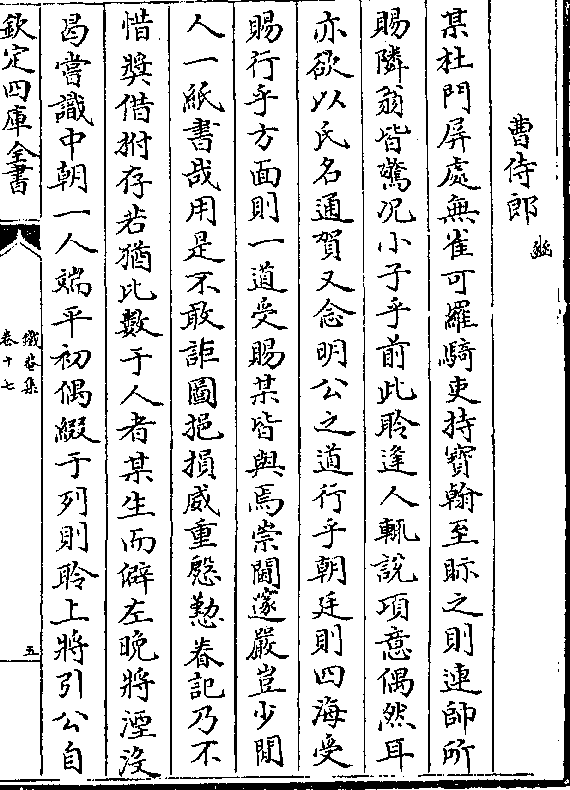 曹侍郎豳
某杜門屏處無雀可羅騎吏持寶翰至眎之則連帥所
賜隣翁皆驚况小子乎前此聆逢人輒說項意偶然耳
亦欲以氏名通賀又念明公之道行乎朝廷則四海受
賜行乎方面則一道受賜某皆與焉崇閫邃嚴豈少閒
人一紙書哉用是不敢詎圖挹損威重慇懃眷記乃不
惜奬借拊存若猶比數于人者某生而僻左晚將湮沒
曷嘗識中朝一人端平初偶綴于列則聆上將引公自
欽定四庫全書
鐵菴集
卷十七
五